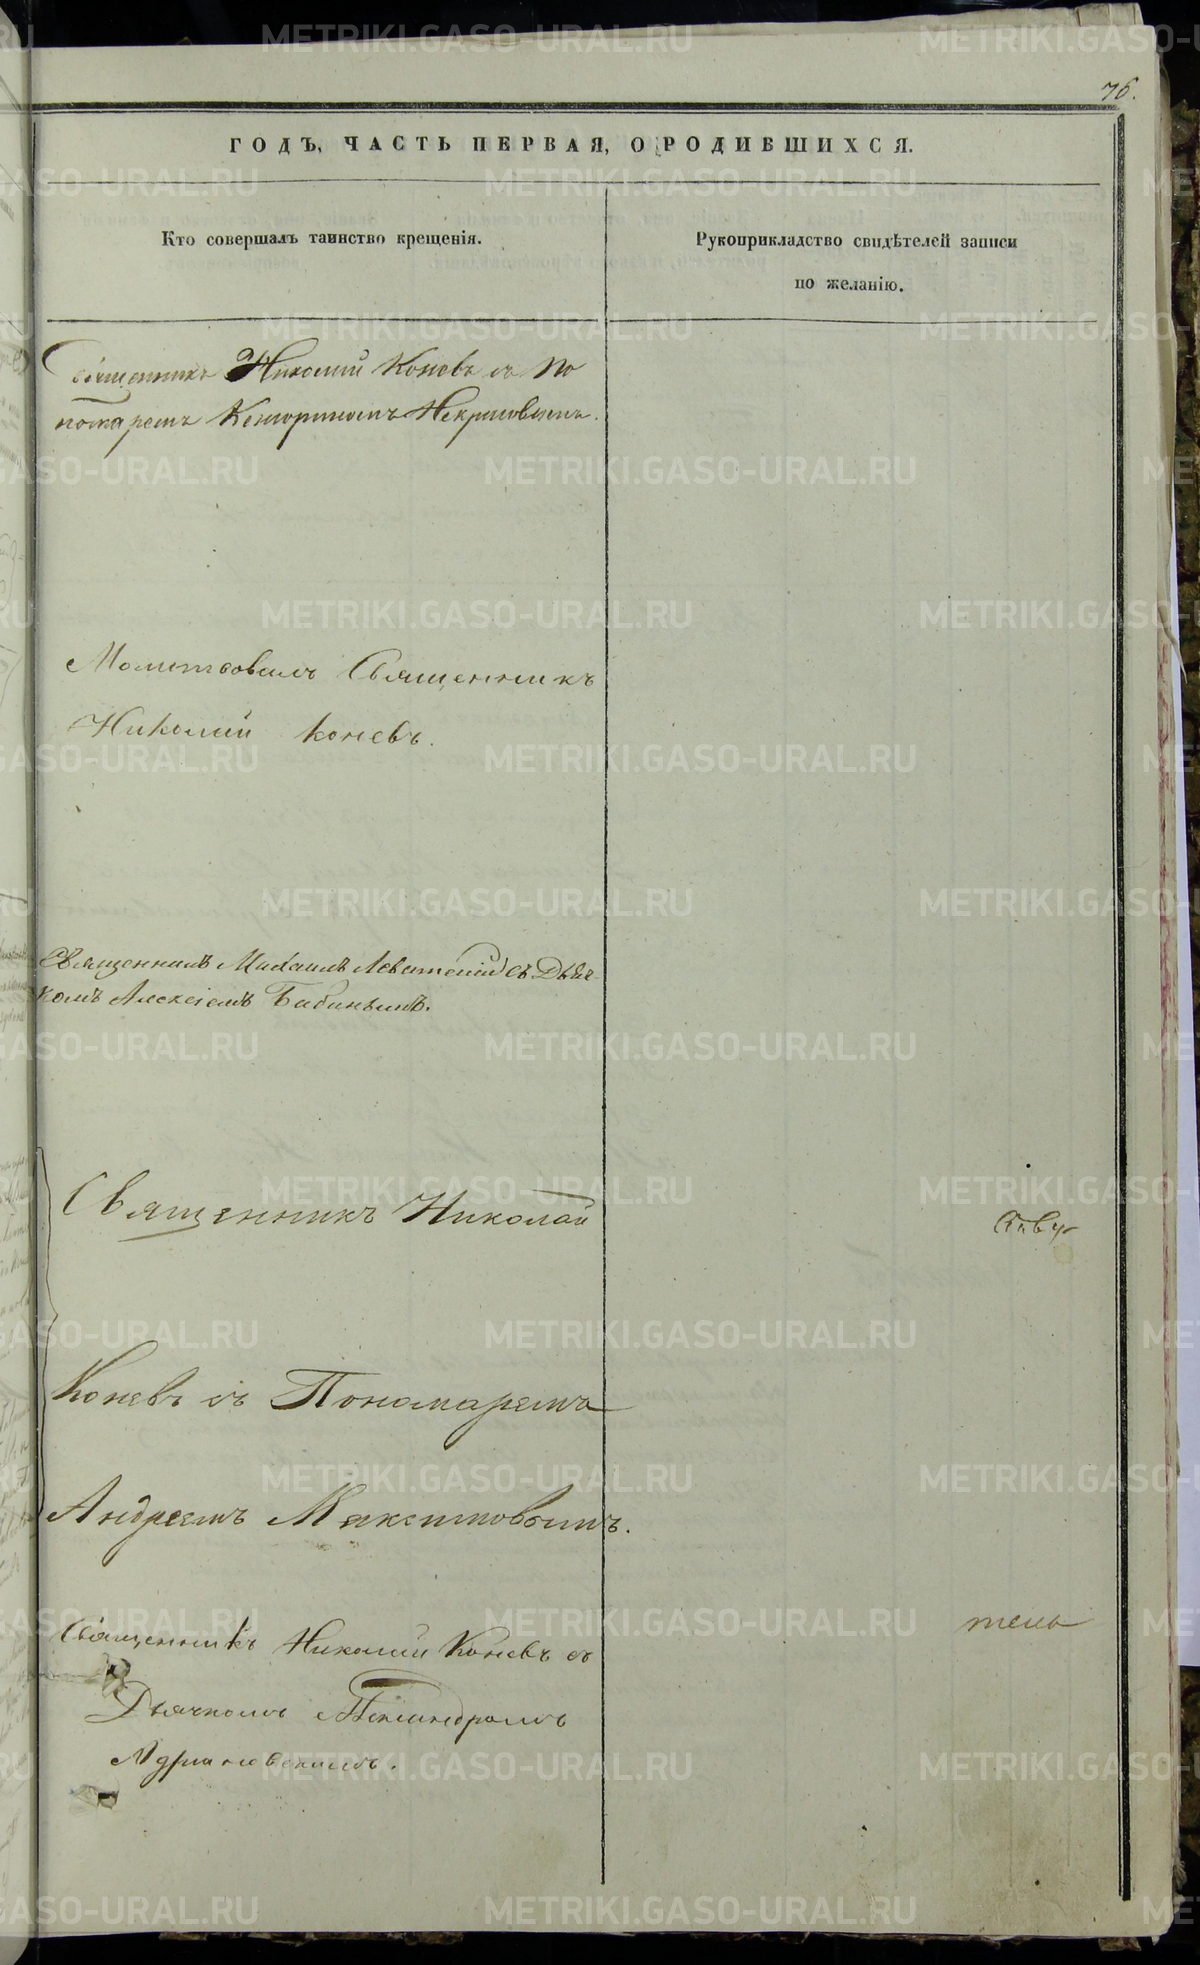 76.
ГОДЪ, ЧАСТЬ ПЕРВАЯ, О РОДИВШИХСЯ.
Кто совершалъ таинство крещенія.
Рукоприкладство свидѣтелей записи
по желанію.
Священникъ Николай Коневъ съ По
номаремъ Некрасовымъ.
Молитвовалъ Священникъ
Николай Коневъ.
Священникъ Михаилъ съ Дьяч-
комъ Алексіемъ Бабинымъ.
Священникъ Николай
Коневъ съ Пономаремъ
Андреемъ Максимовымъ.
Священникъ Николай Коневъ съ
Дьячкомъ
Адріановскимъ.
METRIKI.GASO-URAL.RU